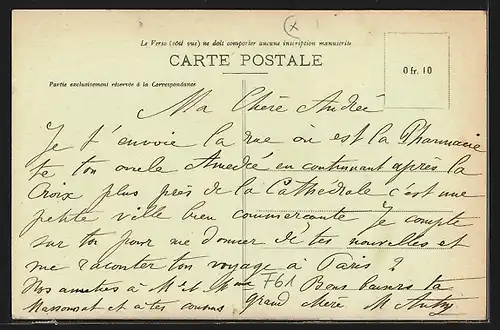 Le Verso (côté vue) ne doit comporter aucune inscription manuscrite
CARTE POSTALE
0 fr. 10
Partie exclusivement réservée à la Correspondance
Ma Chère Andrée
Je t'envoie la rue où est la Pharmacie
de ton oncle Amedée en continuant après la
Croix plus près de la Cathédrale c'est une
petite ville bien commercante Je compte
sur toi pour me donner de tes nouvelles et
me raconter ton voyage à Paris ?
Nos amitiés à Mr et Mme F61 Bons baisers ta
et à tes cousins grand Mère M